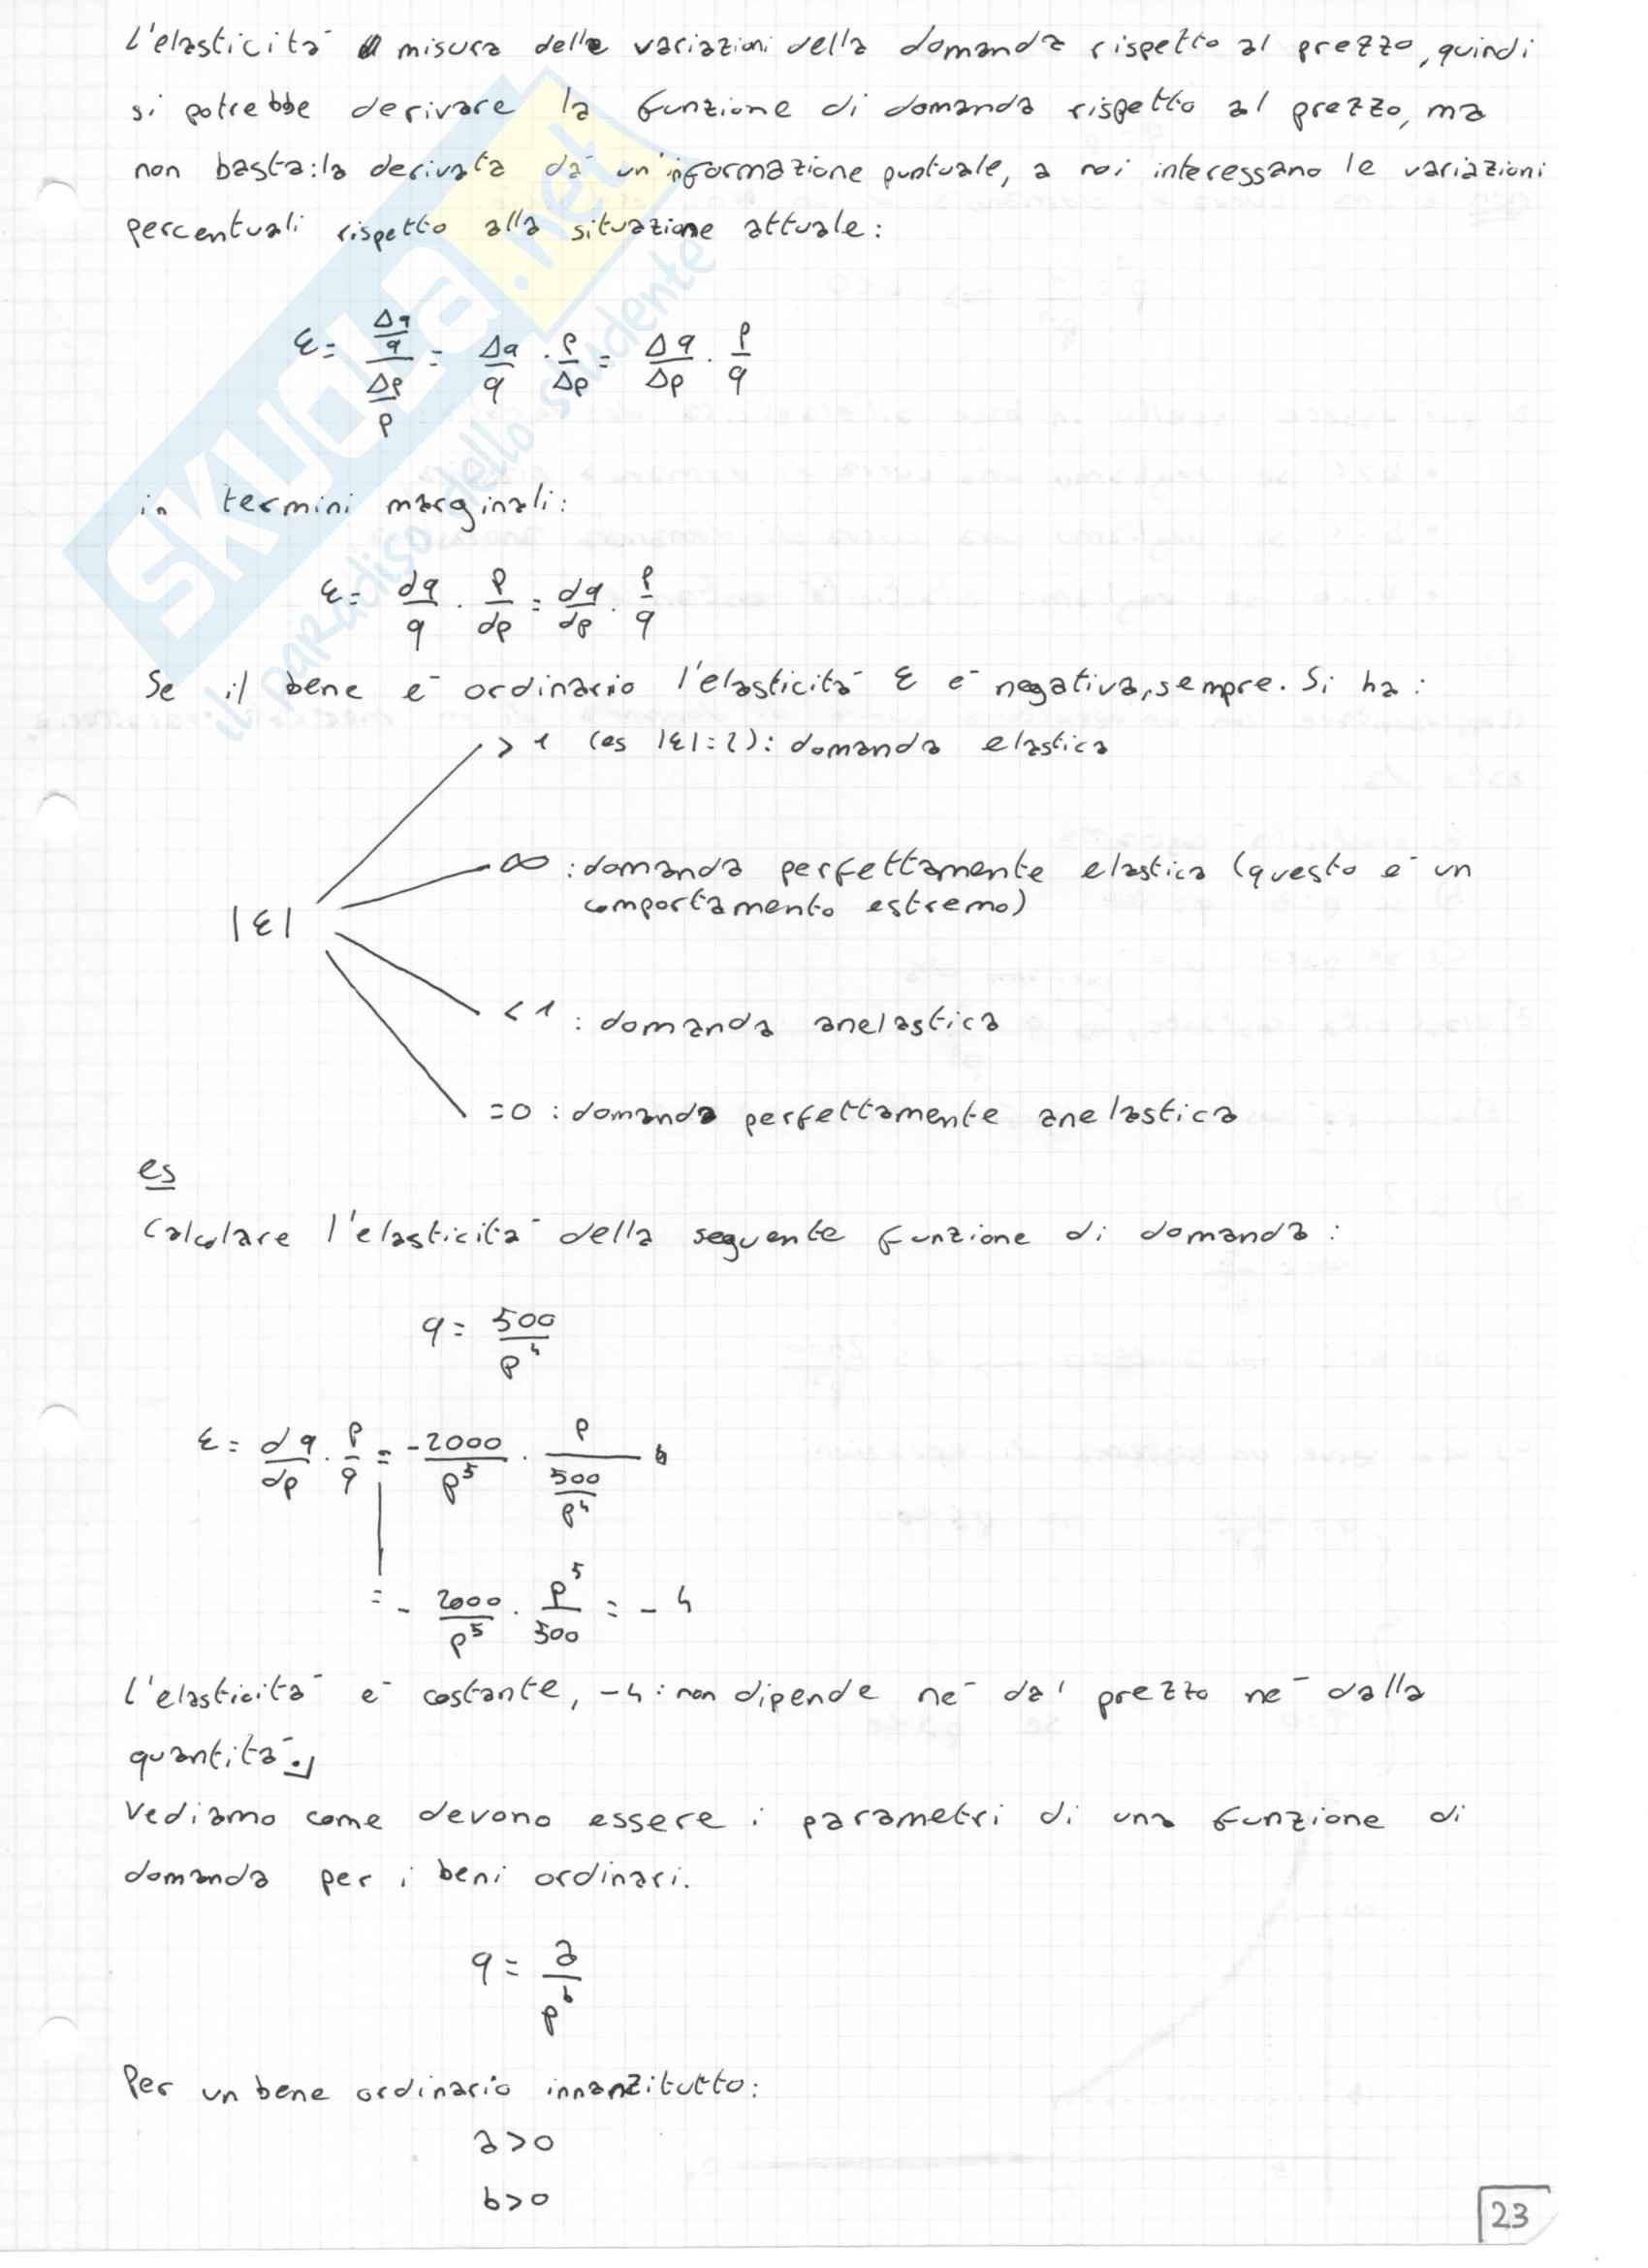 L'elasticità misura delle variazioni della domanda rispetto al prezzo, quindi
si potrebbe derivare la funzione di domanda rispetto al prezzo, ma
non basta: la derivata dà un'informazione puntuale, a noi interessano le variazioni
percentuali rispetto alla situazione attuale:
ε = (Δq/q)/(Δp/p) = Δq/q · p/Δp = Δq/Δp · p/q
in termini marginali:
ε = dq/q · p/dp = dq/dp · p/q
Se il bene è ordinario l'elasticità ε è negativa, sempre. Si ha:
> 1 (es |ε|=2): domanda elastica
∞ : domanda perfettamente elastica (questo è un
comportamento estremo)
|ε|
< 1 : domanda anelastica
=0 : domanda perfettamente anelastica
es
Calcolare l'elasticità della seguente funzione di domanda:
q = 500/p⁴
ε = dq/dp · p/q = -2000/p⁵ · p/(500/p⁴)
= - 2000/p⁵ · p⁵/500 = - 4
L'elasticità è costante, -4: non dipende né dal prezzo né dalla
quantità.
Vediamo come devono essere i parametri di una funzione di
domanda per i beni ordinari.
q = a/p^b
Per un bene ordinario innanzitutto:
a>0
b>0
23
SKUOLA.net
il paradiso dello studente